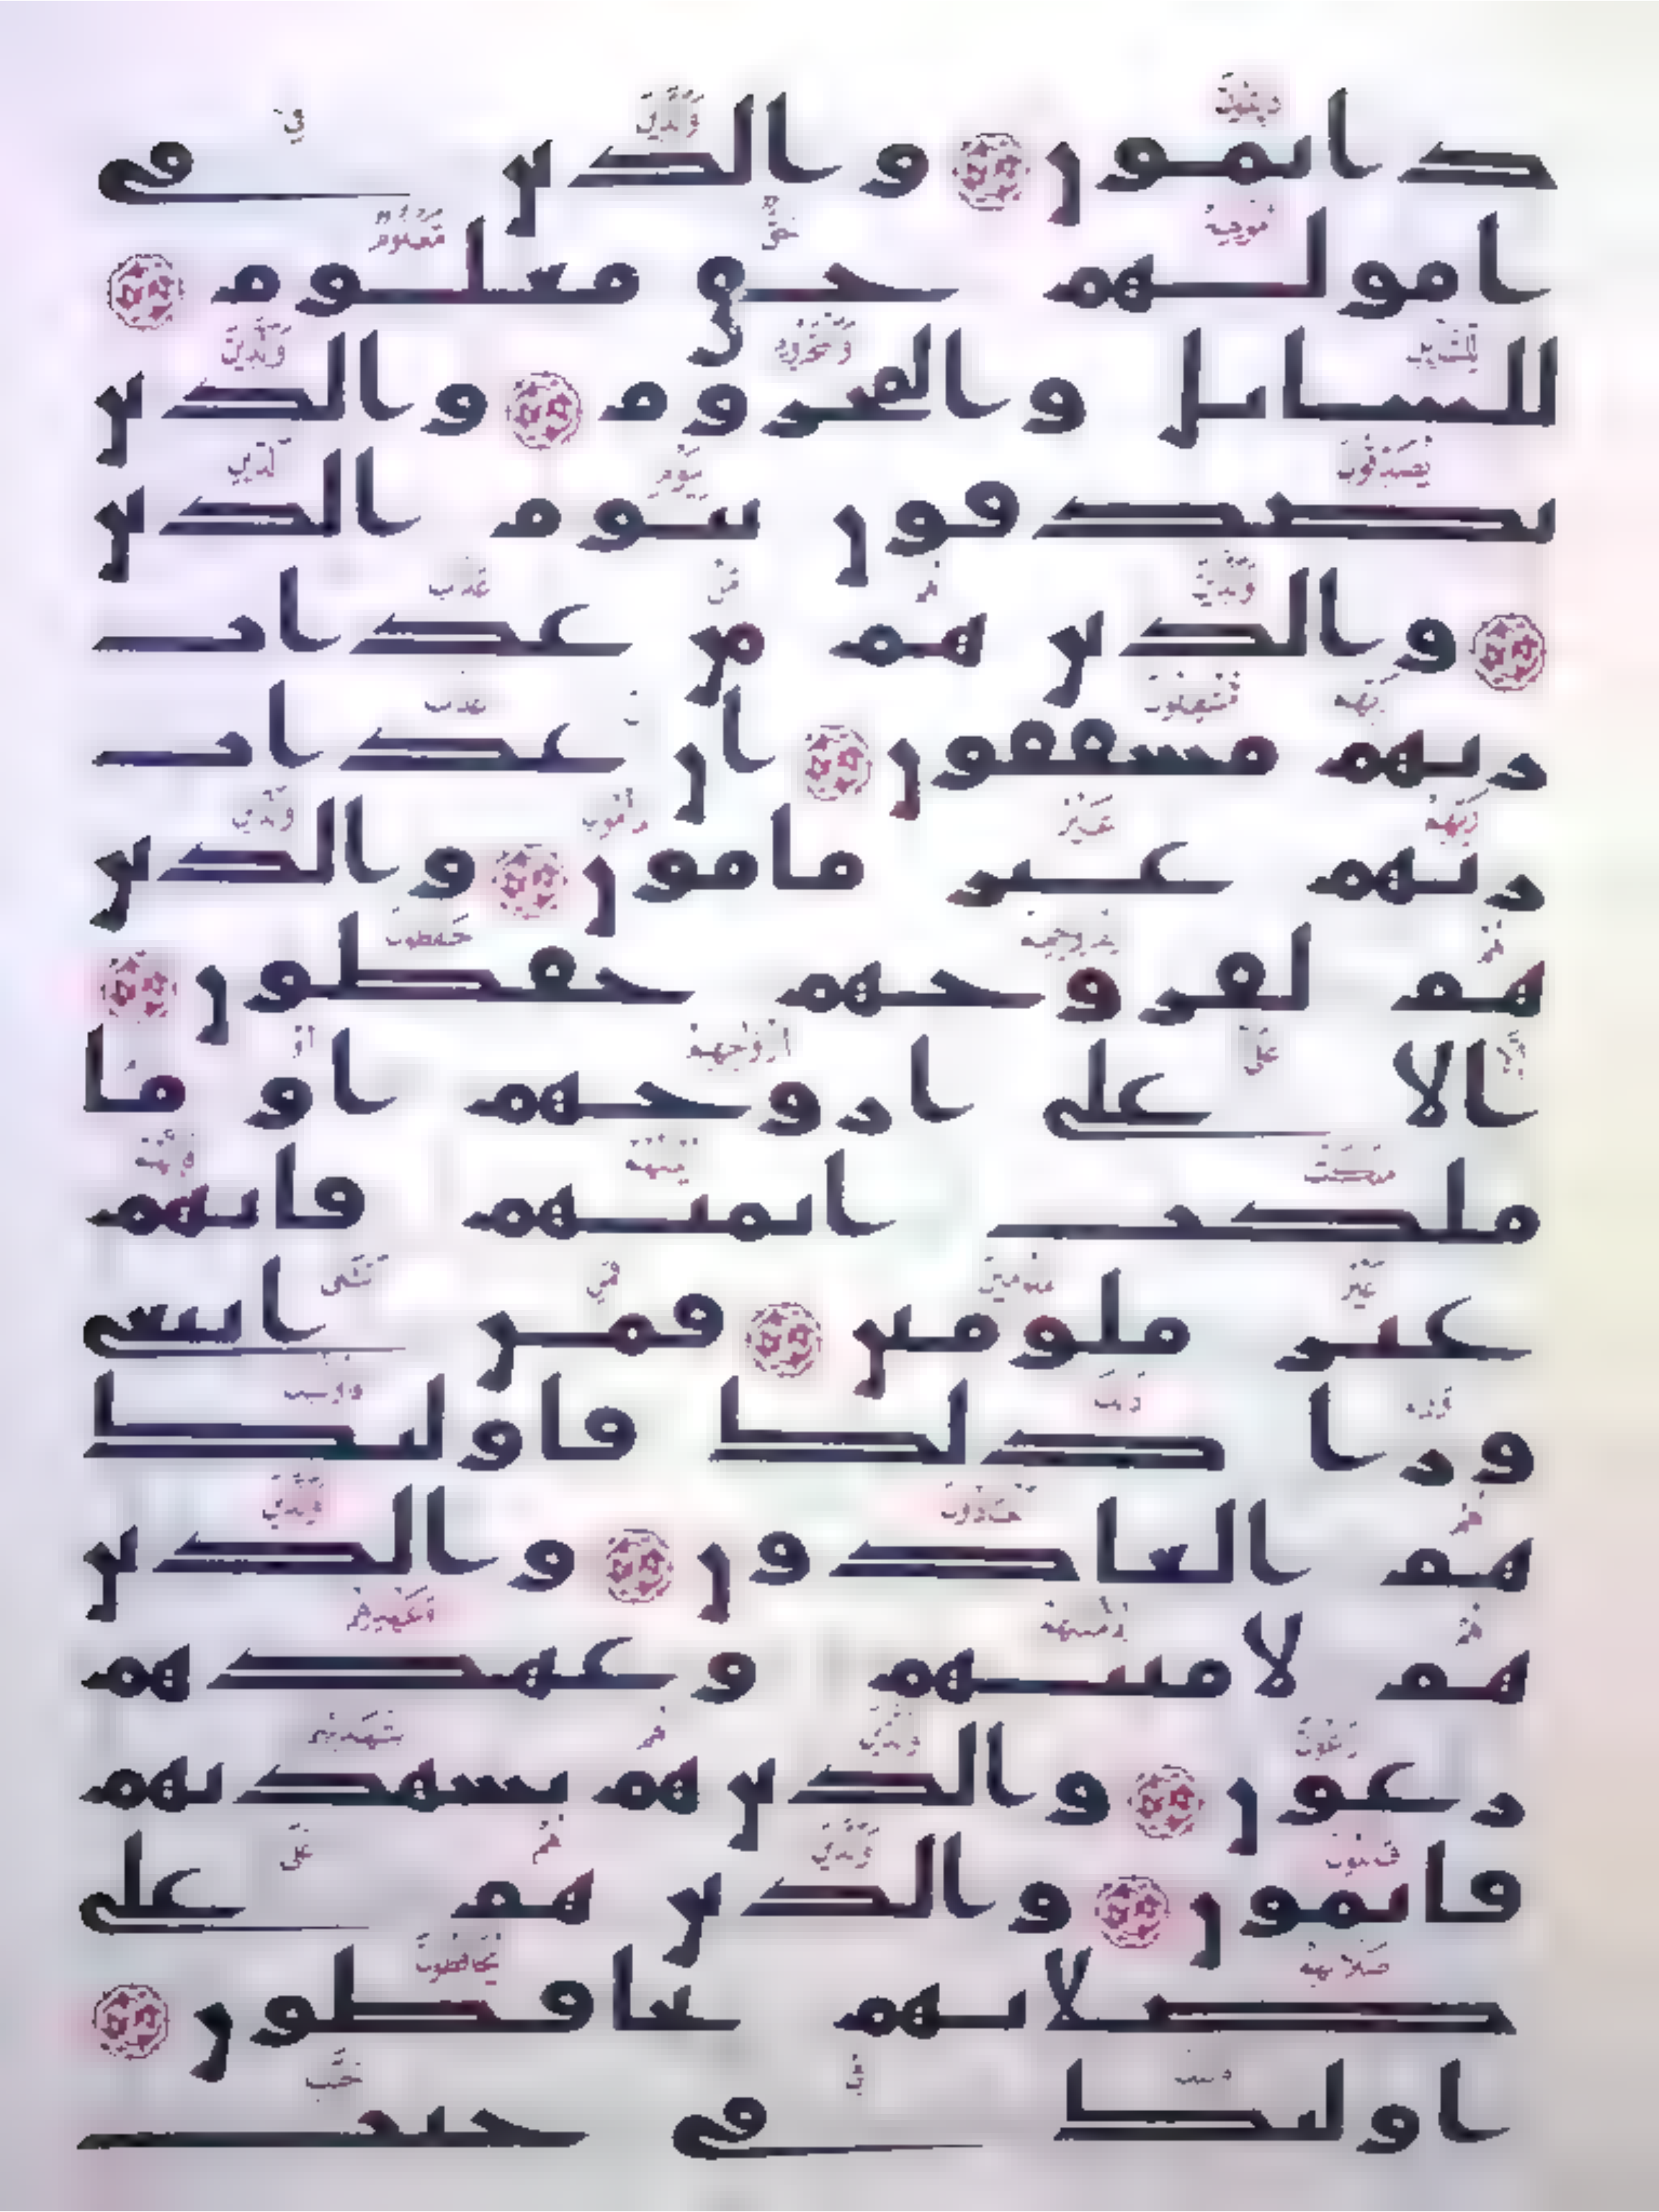 دائمون والذين في
أمولهم حق معلوم
للسائل والمحروم والذين
يصدقون بيوم الدين
والذين هم من عذاب
ربهم مشفقون إن عذاب
ربهم غير مأمون والذين
هم لفروجهم حفظون
إلا على أزوجهم أو ما
ملكت أيمنهم فإنهم
غير ملومين فمن ابتغى
ورا ذلك فأولئك
هم العادون والذين
هم لأمنتهم وعهدهم
رعون والذين هم بشهدتهم
قائمون والذين هم على
صلاتهم يحافظون
أولئك في جنت